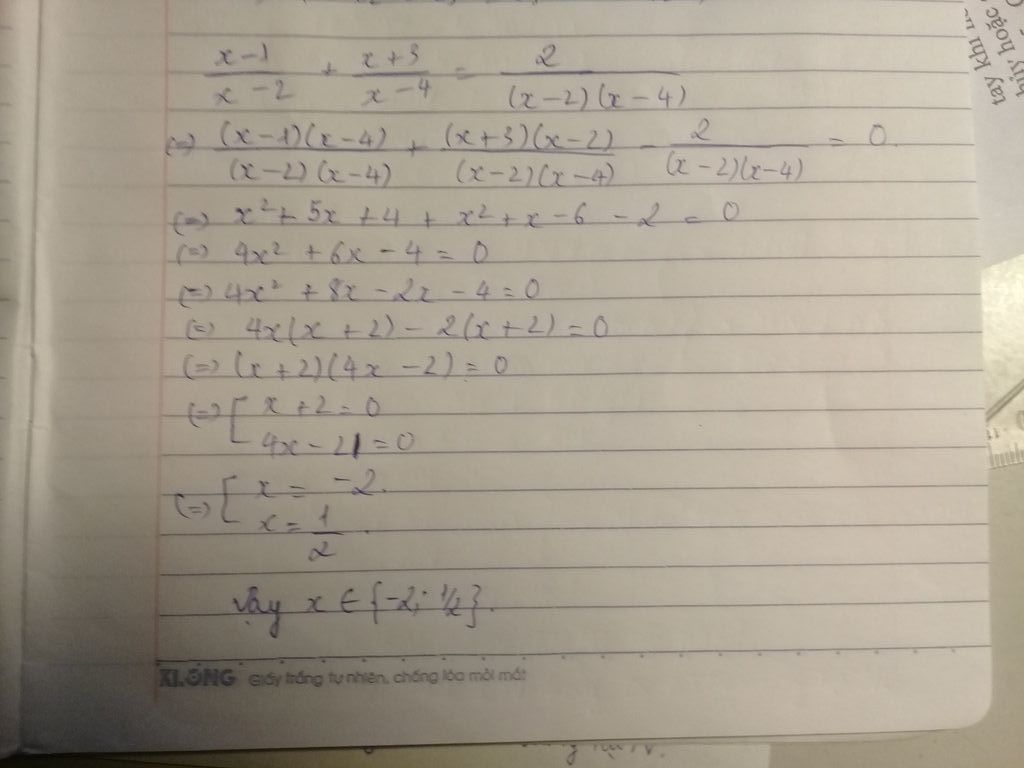 tay khi
hủy, hoặc
x-1/x-2 + x+3/x-4 = 2/(x-2)(x-4)
(=) (x-1)(x-4)/(x-2)(x-4) + (x+3)(x-2)/(x-2)(x-4) - 2/(x-2)(x-4) = 0.
(=) x² + 5x + 4 + x² + x - 6 - 2 = 0
(=) 4x² + 6x - 4 = 0
(=) 4x² + 8x - 2x - 4 = 0
(=) 4x(x + 2) - 2(x + 2) = 0
(=) (x + 2)(4x - 2) = 0
(=) [ x + 2 = 0
4x - 2 = 0
(=) [ x = -2.
x = 1/2.
Vậy x ∈ {-2; 1/2}.
XLONG Giấy trắng tự nhiên, chống lóa mỏi mắt